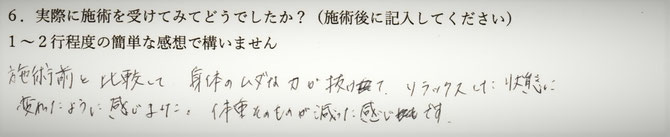 6．実際に施術を受けてみてどうでしたか？（施術後に記入してください）
1～2行程度の簡単な感想で構いません
施術前と比較して 身体のムダな力が抜けて、リラックスした状態に
変れたように感じました。体重そのものが減った感じです。